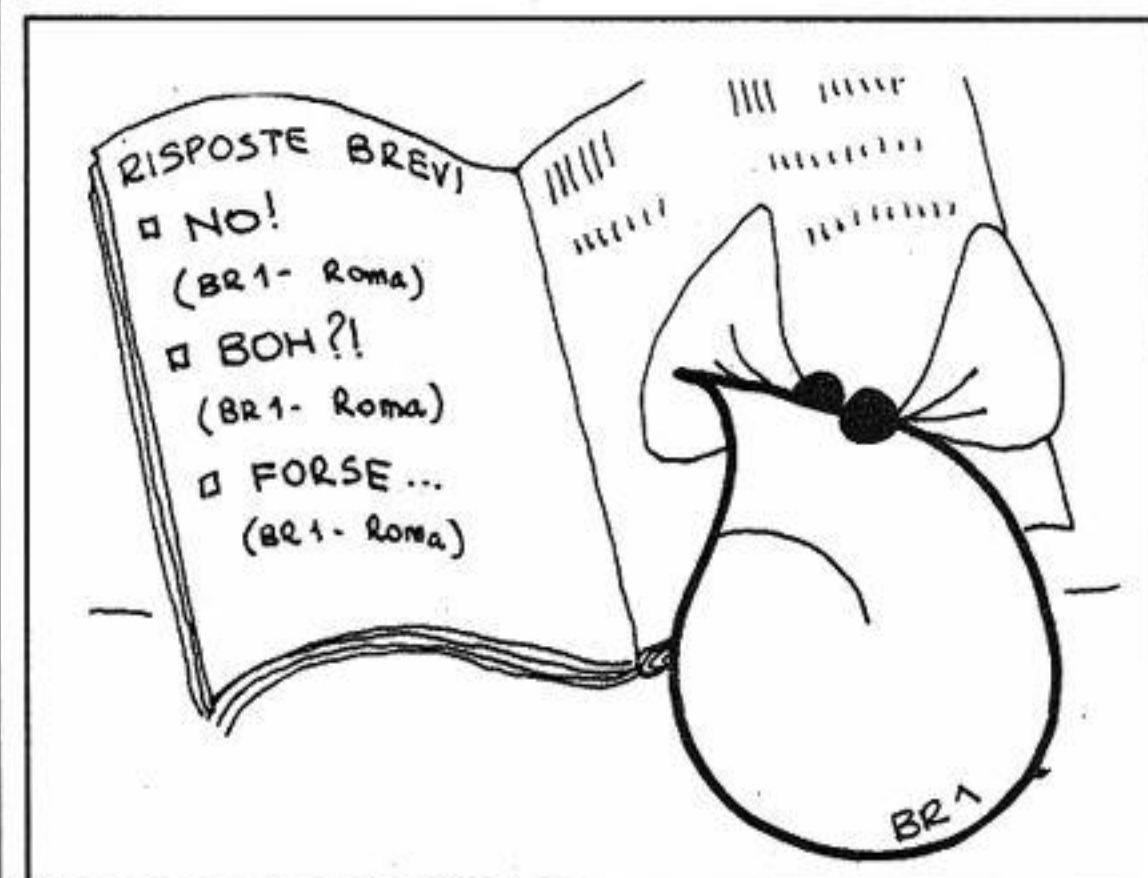 RISPOSTE BREVI
NO!
(BR1- Roma)
BOH?!
(BR1- Roma)
FORSE...
(BR1- Roma)
BR1